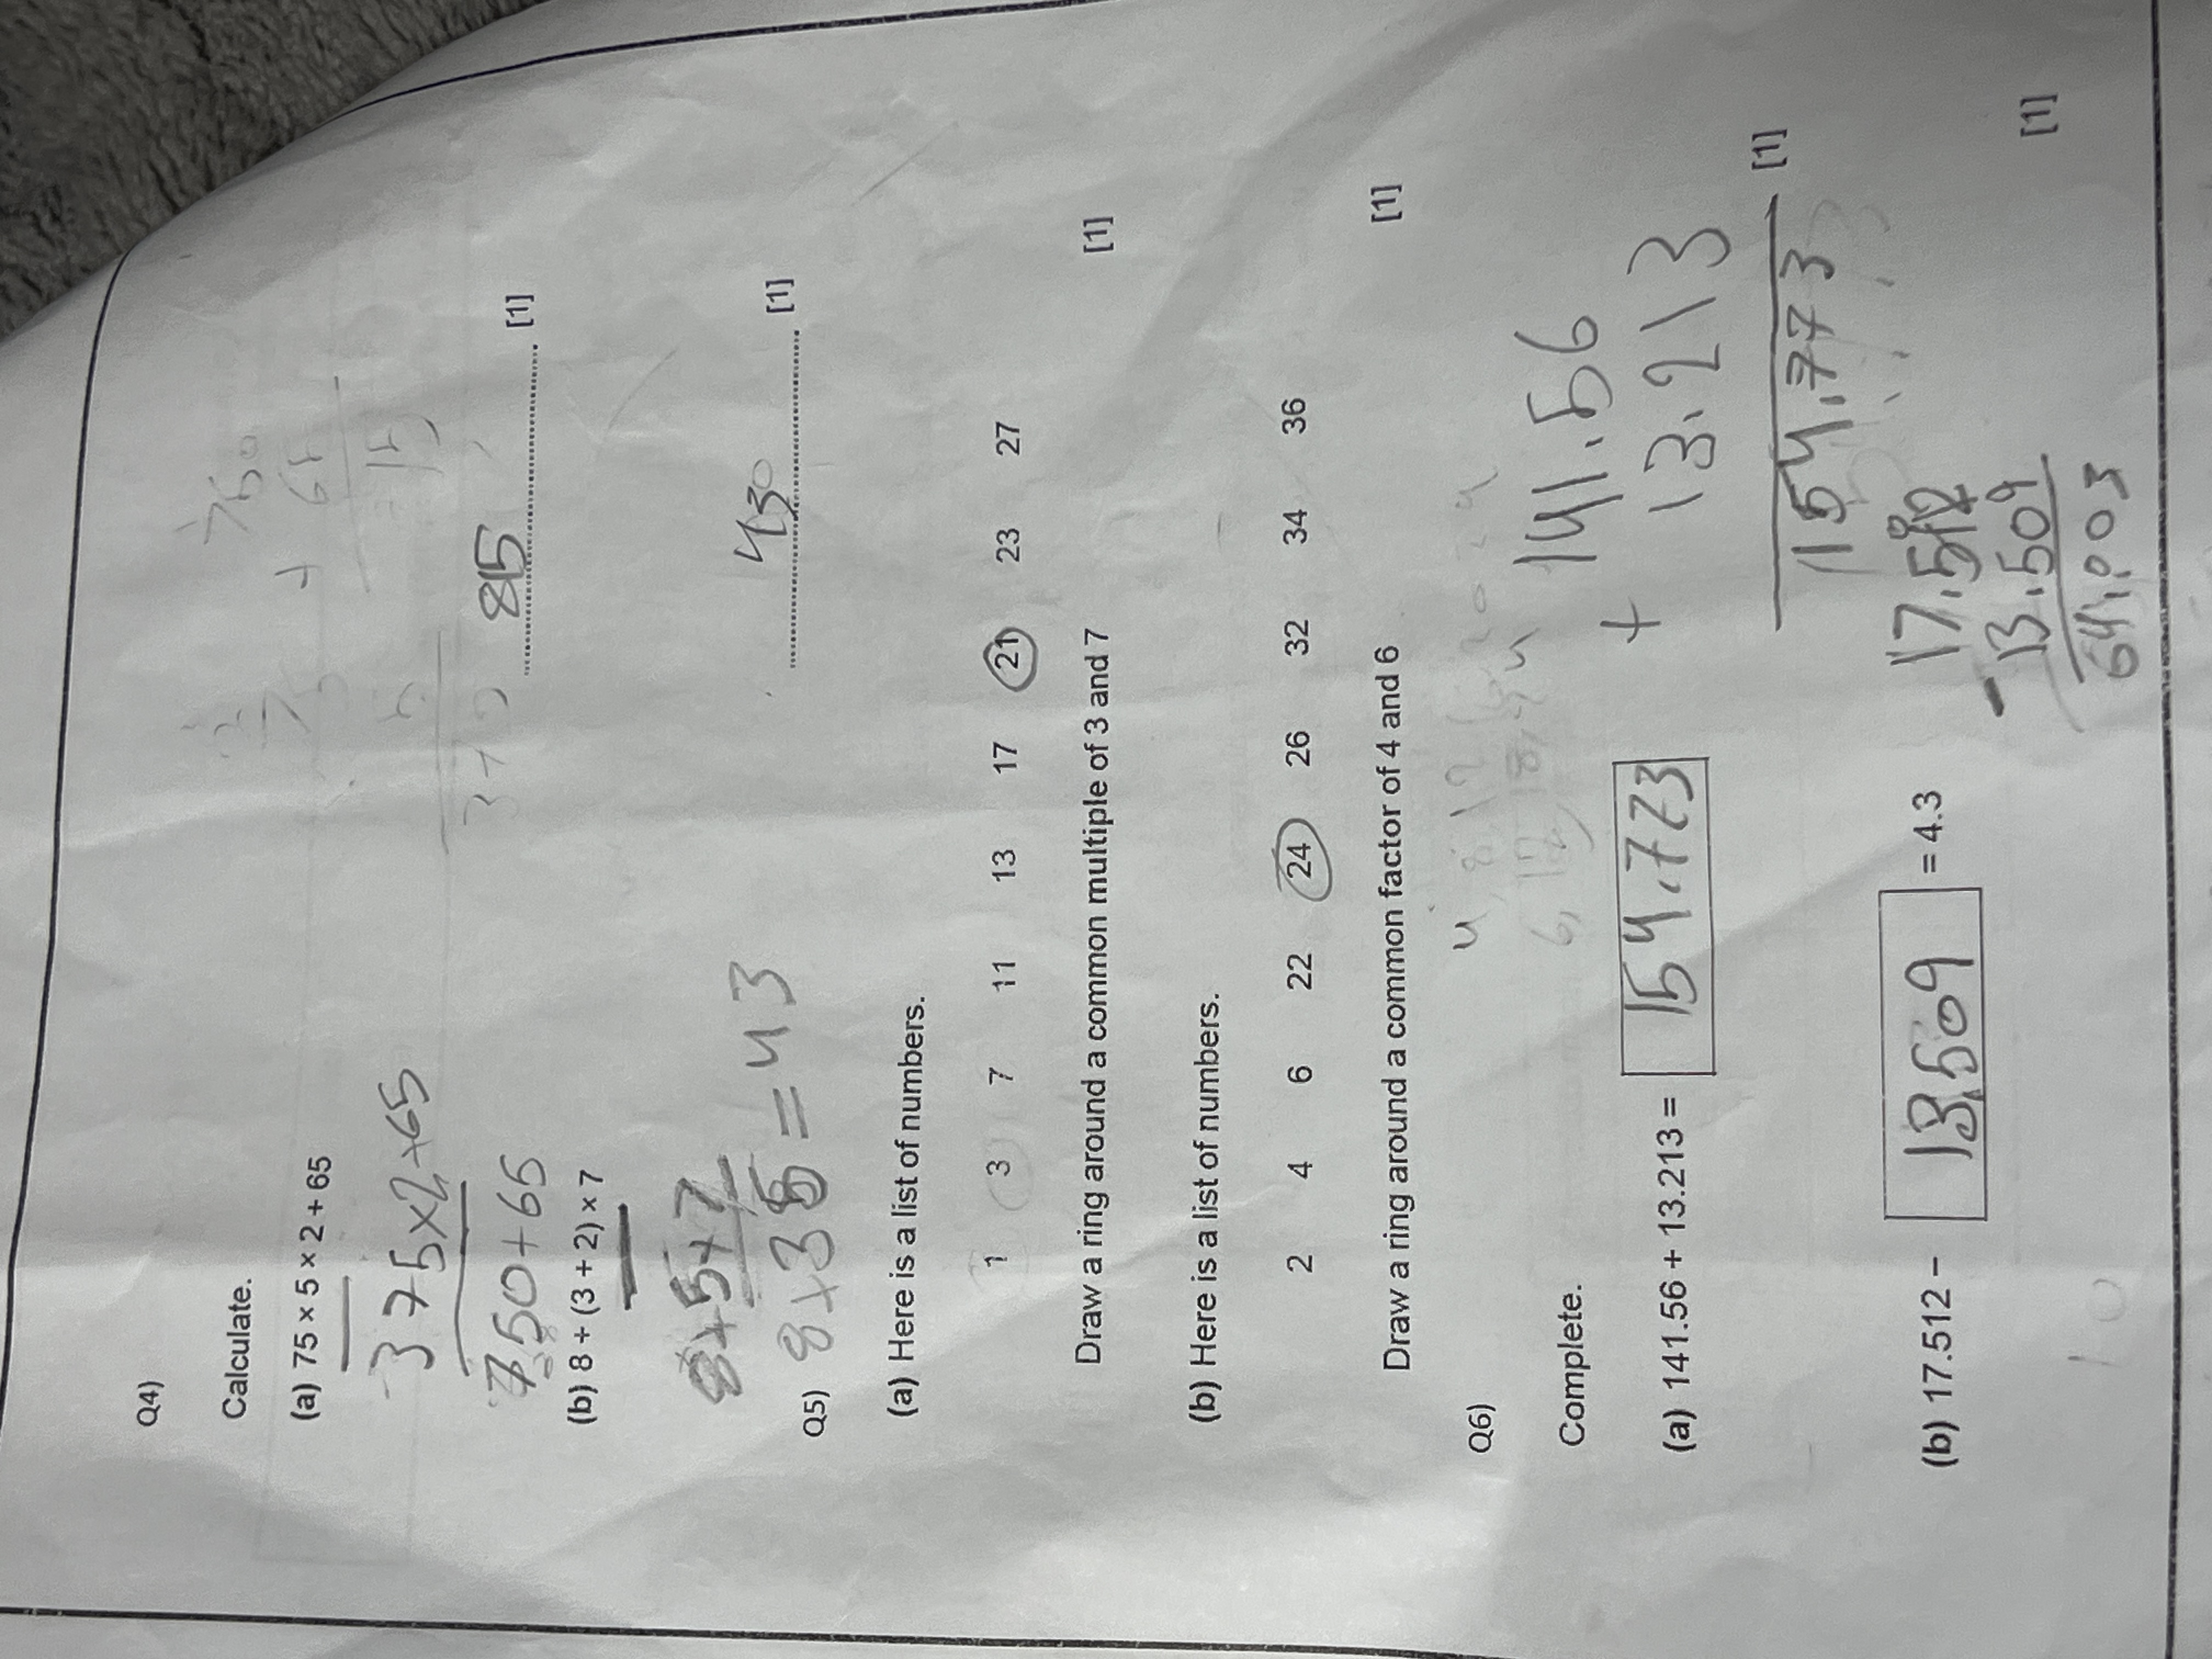 Q4)
Calculate.
(a) 75 × 5 × 2 + 65
375×2+65
750+65
750
+ 65
75
5
375
815 [1]
(b) 8 + (3 + 2) × 7
8+5×7
8+35=43
43 [1]
Q5)
(a) Here is a list of numbers.
1 3 7 11 13 17 21 23 27
Draw a ring around a common multiple of 3 and 7
[1]
(b) Here is a list of numbers.
2 4 6 22 24 26 32 34 36
Draw a ring around a common factor of 4 and 6
[1]
Q6)
Complete.
(a) 141.56 + 13.213 = 154.773
141.56
+ 13.213
154.773
[1]
(b) 17.512 – 13.509 = 4.3
17.512
- 13.509
[1]